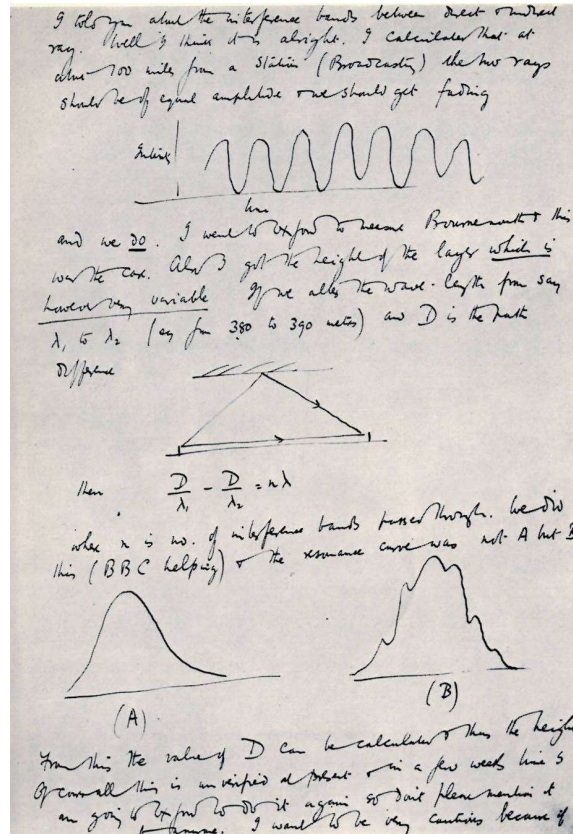 I told you about the interference bands between direct & indirect
ray. Well I think it is alright. I calculated that at
about 100 miles from a station (Broadcasting) the two rays
should be of equal amplitude & we should get fading
Intensity
time
and we do. I went to Oxford to measure Bournemouth & this
was the case. Also I got the height of the layer which is
however very variable If we alter the wave-length from say
λ₁ to λ₂ (say from 380 to 390 metres) and D is the path
difference
then D/λ₁ - D/λ₂ = nλ
where n is no. of interference bands passed through. We did
this (BBC helping) & the resonance curve was not A but B
(A) (B)
From this the value of D can be calculated & thus the height
Of course all this is unverified at present & in a few weeks time I
am going to Oxford to do it again so don't please mention it
I want to be very cautious because of